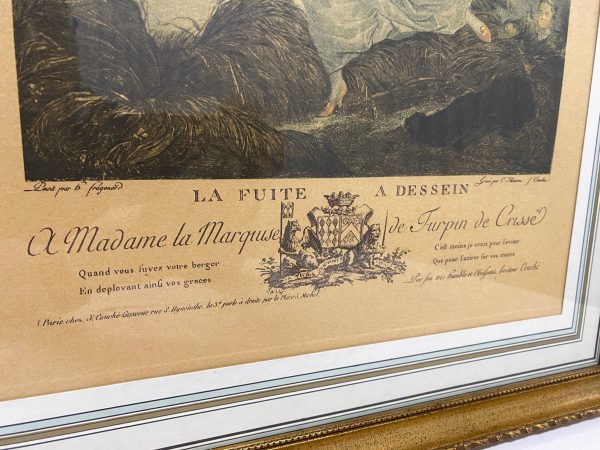 Peint par h. fragonard
Gravé par C. Macret J. Couché
LA FUITE A DESSEIN
A Madame la Marquise de Turpin de Crissé
Quand vous fuyez votre berger
En deployant ainsi vos graces
C'est moins je crois pour l'eviter
Que pour l'attirer sur vos traces
Par son très humble et Obéissant, Serviteur Couché
A Paris chez J. Couché Graveur rue St. Hyacinthe, la 3e. porte à droite par la Place S. Michel